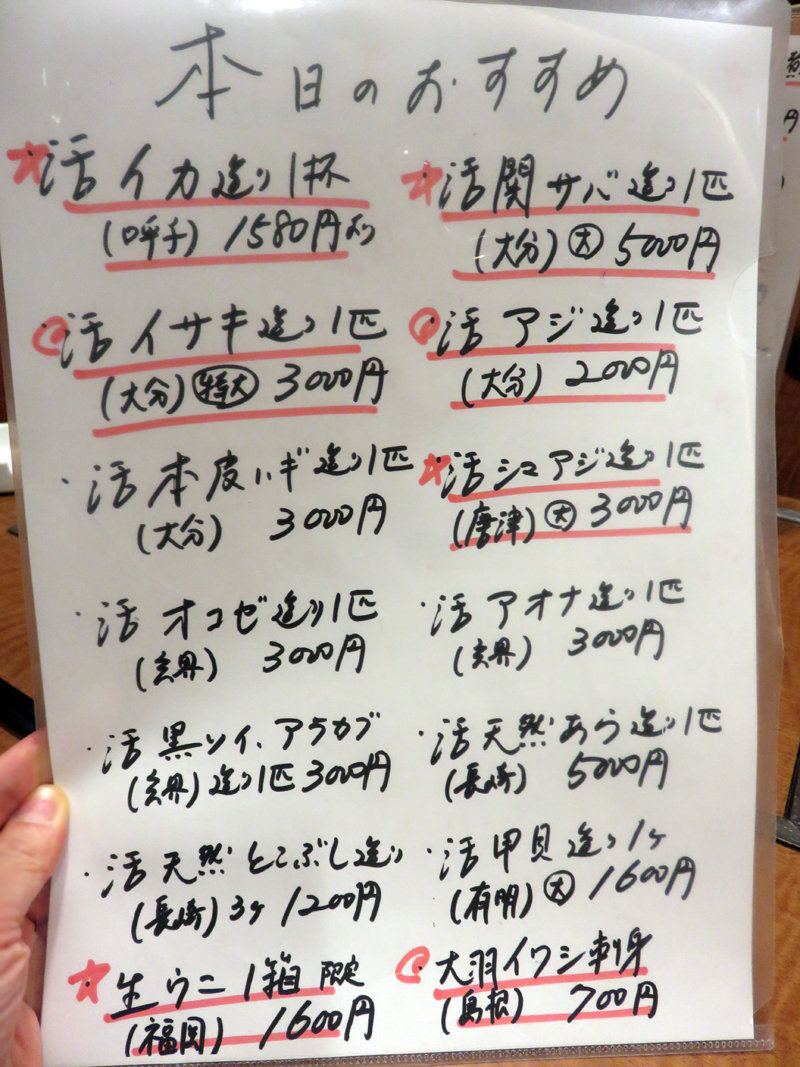 本日のおすすめ
活イカ造り1杯
(呼子) 1580円より
活イサキ造り1匹
(大分) 特大 3000円
・活本皮ハギ造り1匹
(大分) 3000円
・活オコゼ造り1匹
(玄界) 3000円
・活黒ソイ、アラカブ
(玄界) 造り1匹 3000円
・活天然とこぶし造り
(長崎) 3ヶ 1200円
生ウニ1箱 限定
(福岡) 1600円
・活関サバ造り1匹
(大分) 大 5000円
・活アジ造り1匹
(大分) 2000円
・活シマアジ造り1匹
(唐津) 大 3000円
・活アオナ造り1匹
(玄界) 3000円
・活天然あら造り1匹
(長崎) 5000円
・活甲貝造り1ヶ
(有明) 大 1600円
・大羽イワシ刺身
(島根) 700円
円